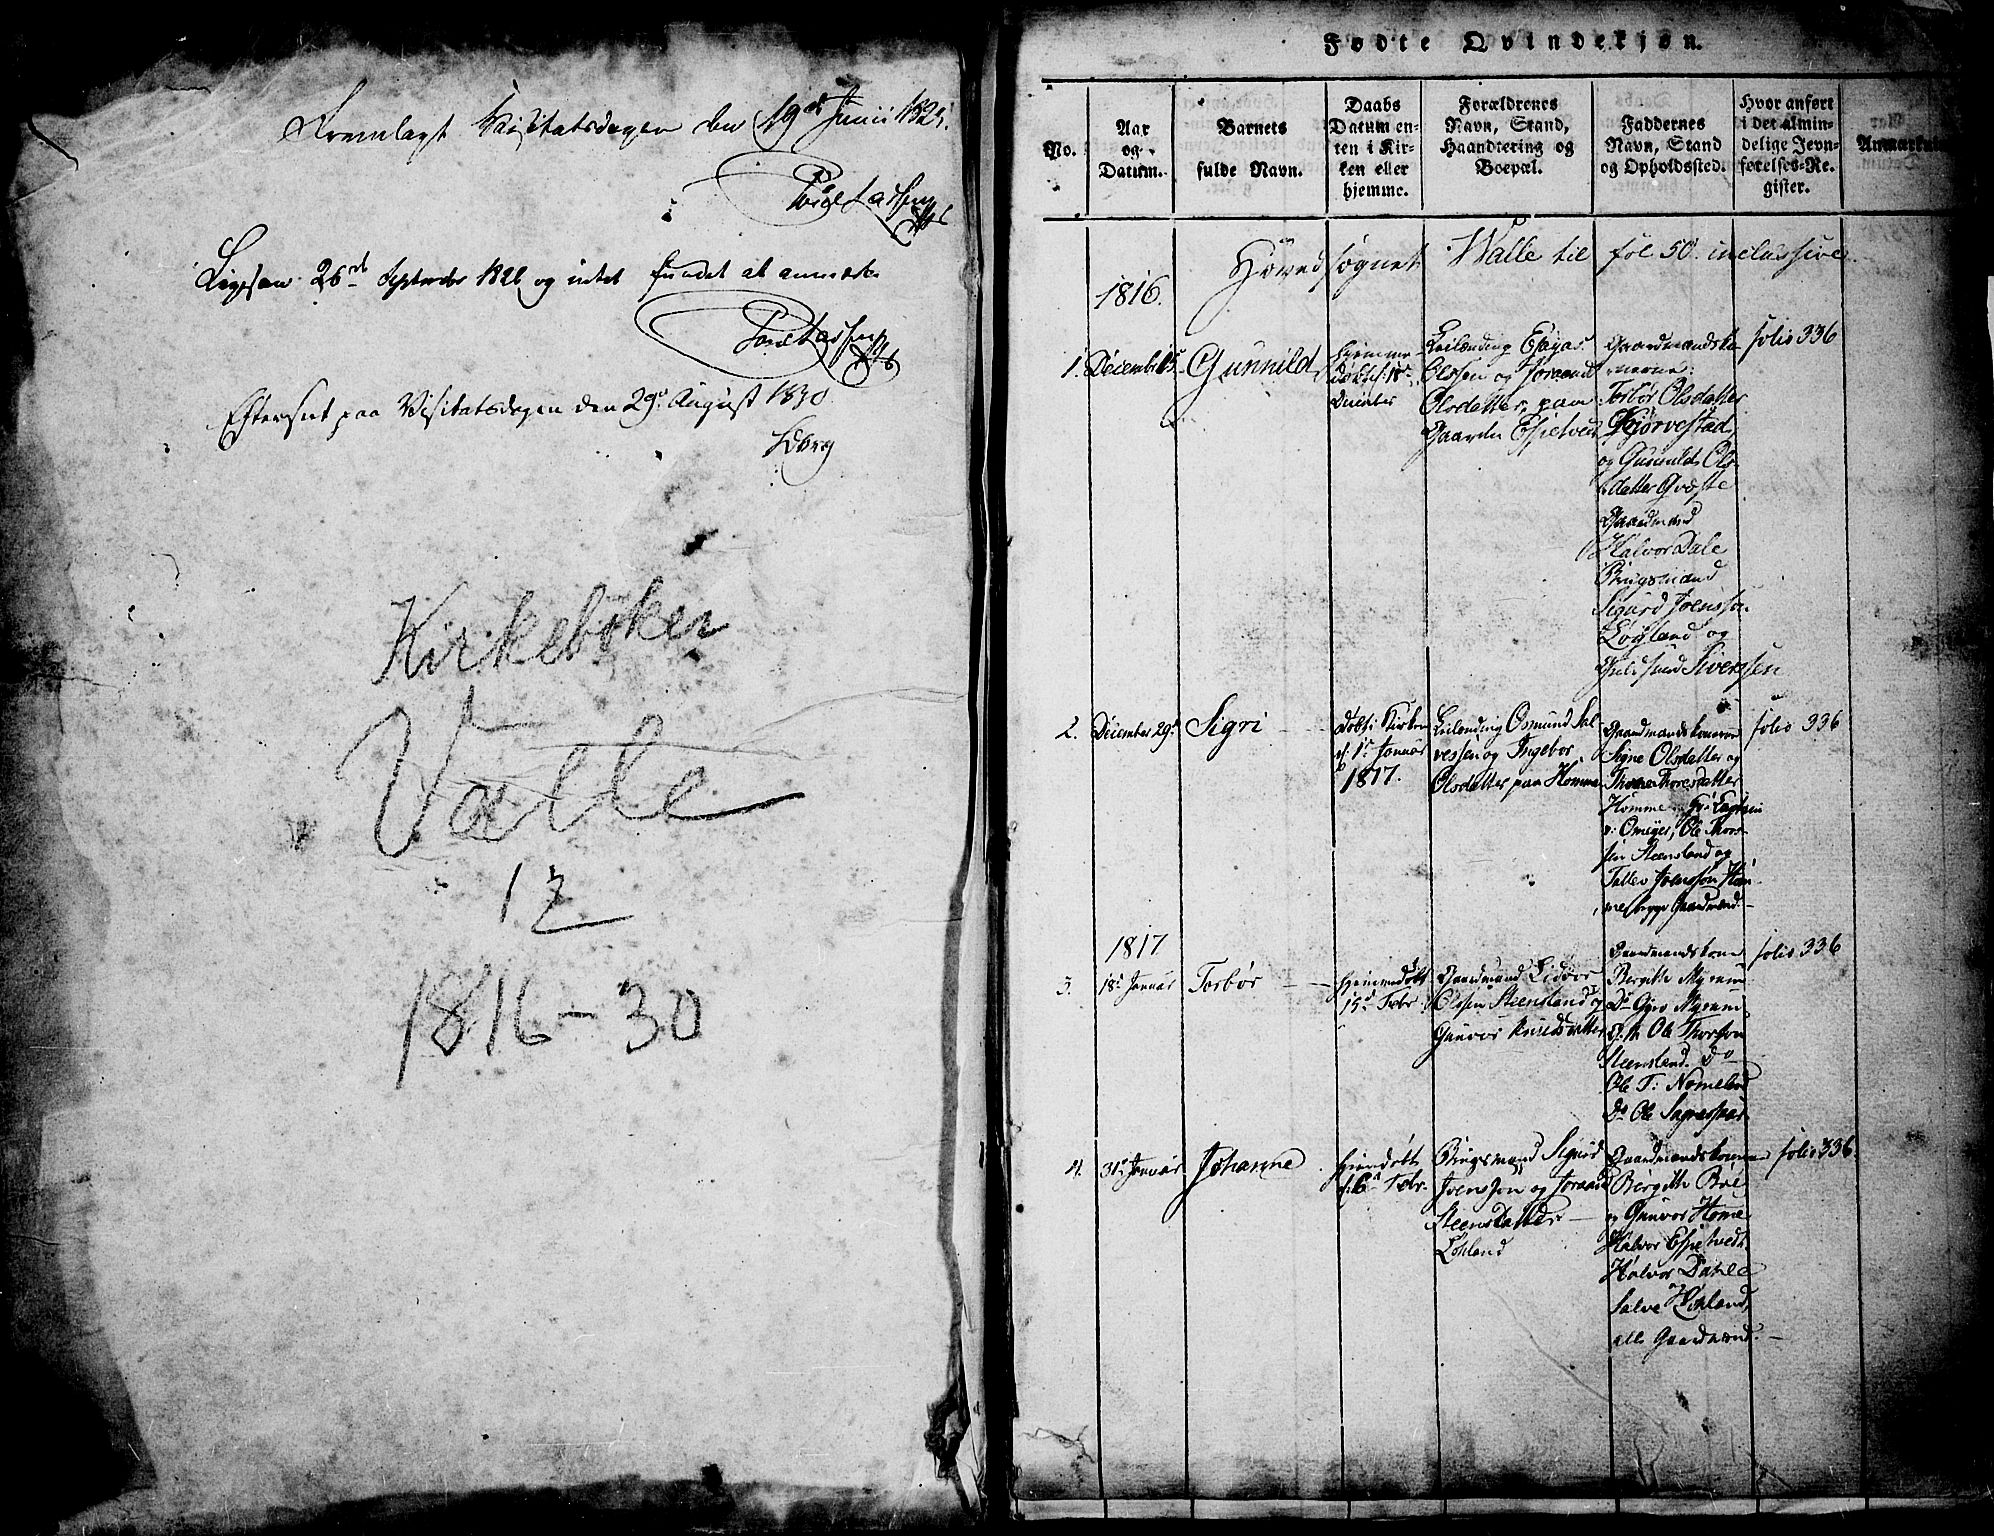 Fremlagt Visitatsdagen den 19de Junii 1821.
Ligesaa 26de September 1826 og intet fundet at anmærke
Efterseet paa Visitatsdagen den 29de August 1830
Kirkebøker
Valle
12
1816-30
Fødte Qvindekjøn.
No.
Aar
og
Datum.
Barnets
fulde Navn.
Daabs
Datum en-
ten i Kir-
ken eller
hjemme.
Forældrenes
Navn, Stand,
Haandtering og
Boepæl.
Faddernes
Navn, Stand
og Opholdssted.
Hvor anført
i det almin-
delige Jevn-
førelses-Re-
gister.
Anmærkni
Hovedsognet Walle til fol 50. inclusive.
1816.
1.
December 15
Gunnild
hjemme-
døbt d: 18
December
Leilænding
Olssen og Joraand
Olsdatter, paa
Gaarden Espetved
Gaardmandsko-
nerne:
Torbør Olsdatter
Kjørvestad
og Gunnild Ols-
datter Qvæste
Gaardmand
Halvor Dale
Brugsmand
Sigurd Joenssøn
Løgland og
Siverssen
folio 336
2.
December 29d
Sigri
Døbt i Kirken
d. 1d Januar
1817.
Leilænding Osmund Sal-
vessen og Ingebor
Olsdatter paa Homme
Gaardmandskonerne
Signe Olsdatter og
Thone Thoresdatter
Homme
v: Omeyer, Ole Thors-
sen Steensland og
Tallev Joenssøn Hom-
me, begge Gaardmænd.
folio 336
1817
3.
18d Januar
Torbør
hjemmedøbt
15d Febr.
Gaardmand Lidvor
Olssen Steensland og
Gunvor Knudsdatter
Gaardmandskone
Bergith Myrum
Do Gyro Myrum
Ole Thorsson
Steensland. do
Ole T: Nomeland
Do Ole
folio 336
4.
31d Januar
Johanne
hjemdøbt
d: 6d Febr.
Brugsmand Sigurd
Joenssøn og Joraand
Steensdatter
Løhland
Gaardmandskonerne
Bergith Bøe
og Gunvor Home
Halvor Espetvedt
Halvor Dahle
og
Salve Løhland,
alle Gaardmænd.
folio 336.